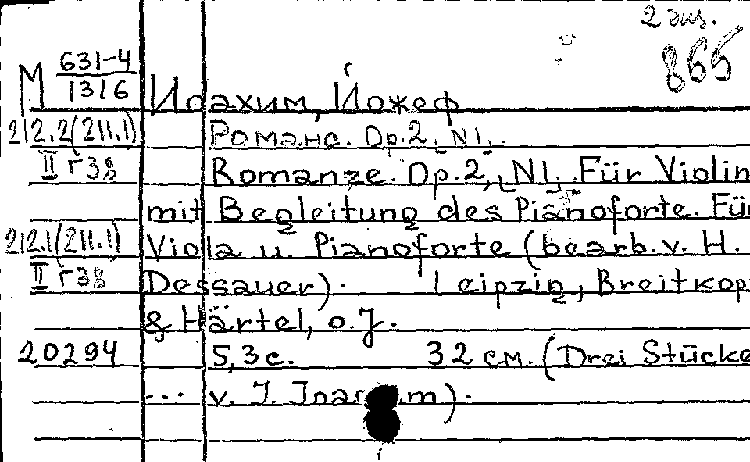 2 экз.
865
М 631-4/1316
Иоахим, Йожеф
212.2(211.1) Романс. Op.2, N1.
II г38 Romanze. Op.2, N1. Für Violin
mit Begleitung des Pianoforte. Für
212.1(211.1) Viola u. Pianoforte (bearb. v. H.
II г38 Dessauer). Leipzig, Breitkop
& Härtel, o.J.
20294 5,3 с. 32 см. (Drei Stücke
... v. J.